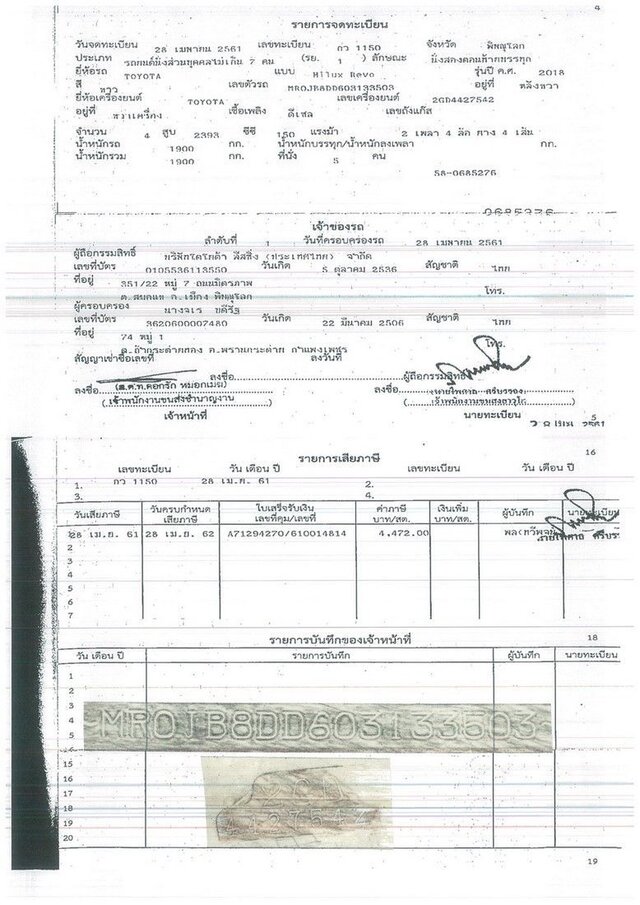 4
รายการจดทะเบียน
วันจดทะเบียน 28 เมษายน 2561 เลขทะเบียน กว 1150 จังหวัด พิษณุโลก
ประเภท รถยนต์นั่งส่วนบุคคลไม่เกิน 7 คน (รย. 1) ลักษณะ นั่งสองตอนท้ายบรรทุก
ยี่ห้อรถ TOYOTA แบบ Hilux Revo รุ่นปี ค.ศ. 2018
สี ขาว เลขตัวรถ MR0JB8DD603133503 อยู่ที่ หลังขวา
ยี่ห้อเครื่องยนต์ TOYOTA เลขเครื่องยนต์ 2GD4427542
อยู่ที่ ขวาเครื่อง เชื้อเพลิง ดีเซล เลขถังแก๊ส
จำนวน 4 สูบ 2393 ซีซี 150 แรงม้า 2 เพลา 4 ล้อ ยาง 4 เส้น
น้ำหนักรถ 1900 กก. น้ำหนักบรรทุก/น้ำหนักลงเพลา กก.
น้ำหนักรวม 1900 กก. ที่นั่ง 5 คน
58-0685276
0685276
เจ้าของรถ
ลำดับที่ 1 วันที่ครอบครองรถ 28 เมษายน 2561
ผู้ถือกรรมสิทธิ์ บริษัทโตโยต้า ลีสซิ่ง (ประเทศไทย) จำกัด
เลขที่บัตร 0105536113550 วันเกิด 5 ตุลาคม 2536 สัญชาติ ไทย
ที่อยู่ 351/22 หมู่ 7 ถนนมิตรภาพ
ต.สมอแข อ.เมือง พิษณุโลก โทร.
ผู้ครอบครอง
เลขที่บัตร 3620600007480 วันเกิด 22 มีนาคม 2506 สัญชาติ ไทย
ที่อยู่ 74 หมู่ 1
ต.ถ้ำกระต่ายทอง อ.พรานกระต่าย กำแพงเพชร โทร.
สัญญาเช่าซื้อเลขที่ ลงวันที่
ลงชื่อ ผู้ถือกรรมสิทธิ์
ลงชื่อ ลงชื่อ
(เจ้าพนักงานขนส่งชำนาญงาน
เจ้าหน้าที่ นายทะเบียน
5
28 เม.ย. 2561
16
รายการเสียภาษี
เลขทะเบียน วัน เดือน ปี เลขทะเบียน วัน เดือน ปี
1. กว 1150 28 เม.ย. 61 2.
3. 4.
วันเสียภาษี วันครบกำหนดเสียภาษี ใบเสร็จรับเงิน เลขที่คุม/เลขที่ ค่าภาษี บาท/สต. เงินเพิ่ม บาท/สต. ผู้บันทึก นายทะเบียน
1 28 เม.ย. 61 28 เม.ย. 62 A71294270/610014814 4,472.00
2
3
4
5
6
7
รายการบันทึกของเจ้าหน้าที่ 18
วัน เดือน ปี รายการบันทึก ผู้บันทึก นายทะเบียน
1
2
3
4 MR0JB8DD603133503
5
6
15
16
17
18 4427542
19
20
19